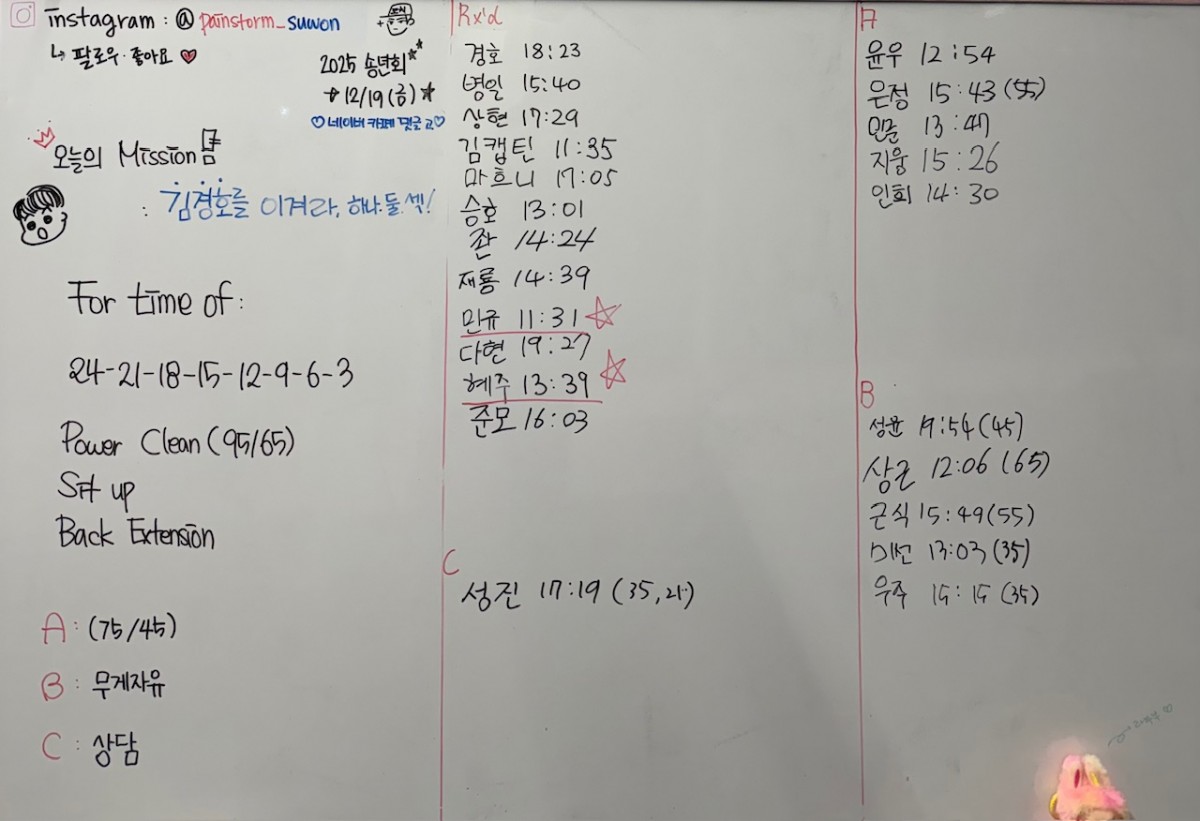 instagram : @painstorm_suwon
↳ 팔로우·좋아요 ♥
2025 송년회
12/19 (금)
♡네이버 카페 댓글 고♡
오늘의 Mission
: 김경호를 이겨라, 하나.둘.셋!
For time of:
24-21-18-15-12-9-6-3
Power Clean (95/65)
Sit up
Back Extension
A : (75/45)
B : 무게자유
C : 상담
Rx'd
경호 18:23
병일 15:40
상현 17:29
김캡틴 11:35
마흐니 17:05
승호 13:01
좐 14:24
재룡 14:39
민규 11:31
다현 19:27
혜주 13:39
준모 16:03
C
성진 17:19 (35, 21)
A
윤우 12:54
은정 15:43 (55)
13:47
지웅 15:26
인회 14:30
B
성윤 19:54 (45)
상근 12:06 (65)
근식 15:49 (55)
미선 13:03 (35)
우주 15:15 (35)